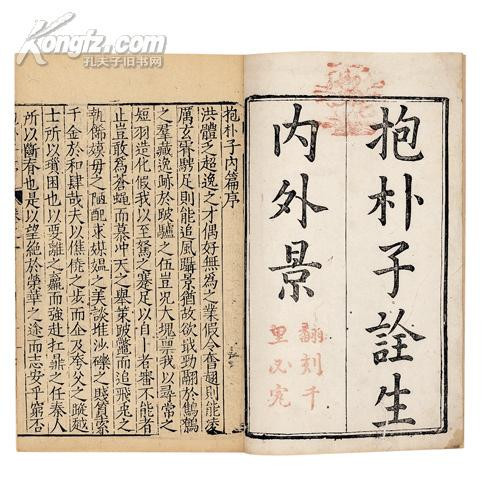 Kongfz.com
孔夫子旧书网
抱朴子詮生
内外景
翻刻千
里必究
抱朴子內篇序
洪體乏超逸之才偶好無為之業假令奮翅則能凌
厲玄霄騁足則能追風躡景猶故欲戢勁翮於鷦鷯
之羣藏逸跡於跛驢之伍豈況大塊稟我以尋常之
短羽造化假我以至駑之蹇足以自卜者審不能者
止豈敢為蒼蠅而慕冲天之舉策跛鱉而追飛兔之
軌飾嫫母之陋醜求媒媼之美談堆沙礫之賤質索
千金於和肆哉夫以僬僥之步而企及夸父之蹤
士所以困也以要離之羸而強赴扛鼎之任秦人
所以斷脊也是以望絶於榮華之途而志安乎窮否